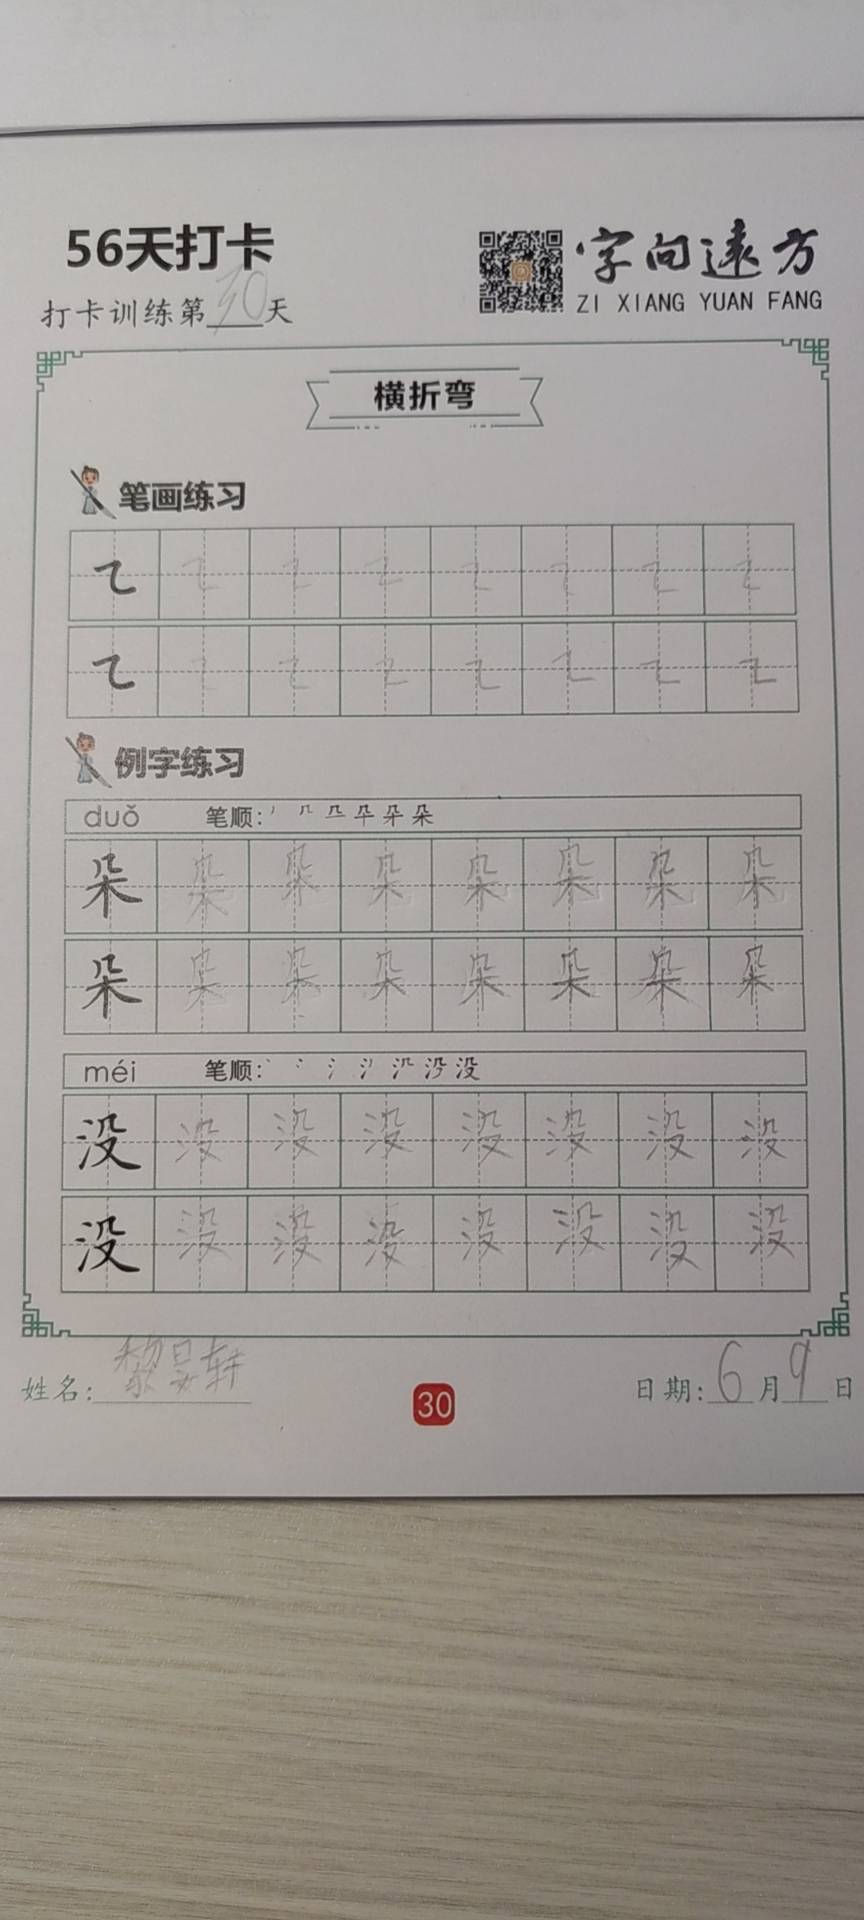 56天打卡
字向遠方
打卡训练第30天
ZI XIANG YUAN FANG
横折弯
笔画练习
例字练习
duǒ 笔顺:
朵 朵 朵 朵 朵 朵 朵 朵
朵 朵 朵 朵 朵 朵 朵 朵
méi 笔顺: 没
没 没 没 没 没 没 没 没
没 没 没 没 没 没 没 没
姓名: 黎晏轩
30
日期: 6月9日